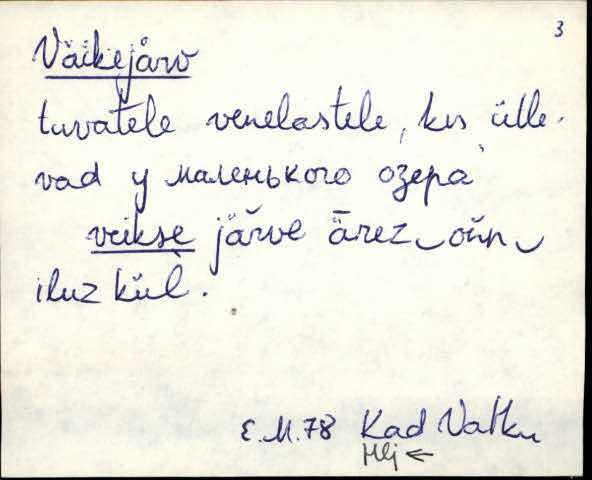 3
Väikejärv
tuvatele venelastele, kes ütle-
vad у маленького озера
veikse järve ärez‿oŭn‿
iluz kül.
E.M.78 Kad Vatku
Hlj ←